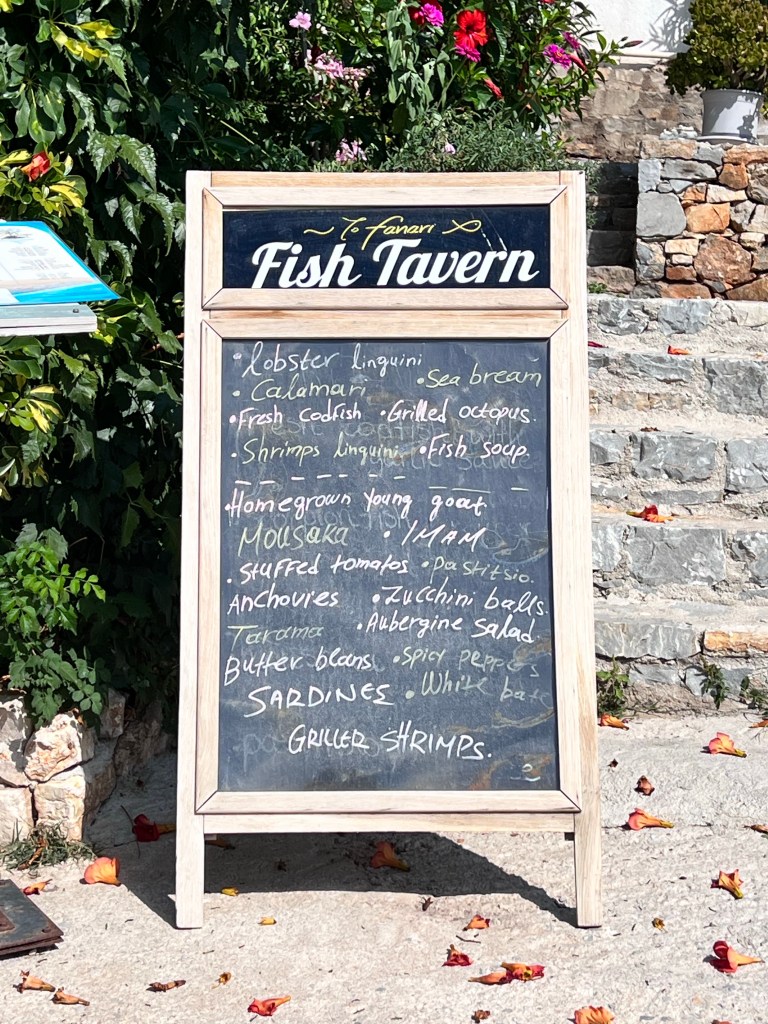 ~ To fanari
Fish Tavern
• lobster linguini
• Calamari • Sea bream
• Fresh Codfish • Grilled octopus.
• Shrimps linguini • Fish soup.
• Homegrown young goat
Mousaka • IMAM
• stuffed tomatos • pastitsio.
Anchovies • Zucchini balls.
Tarama • Aubergine Salad.
Butter beans • Spicy peppers
SARDINES • White bate
GRILLER SHRIMPS.